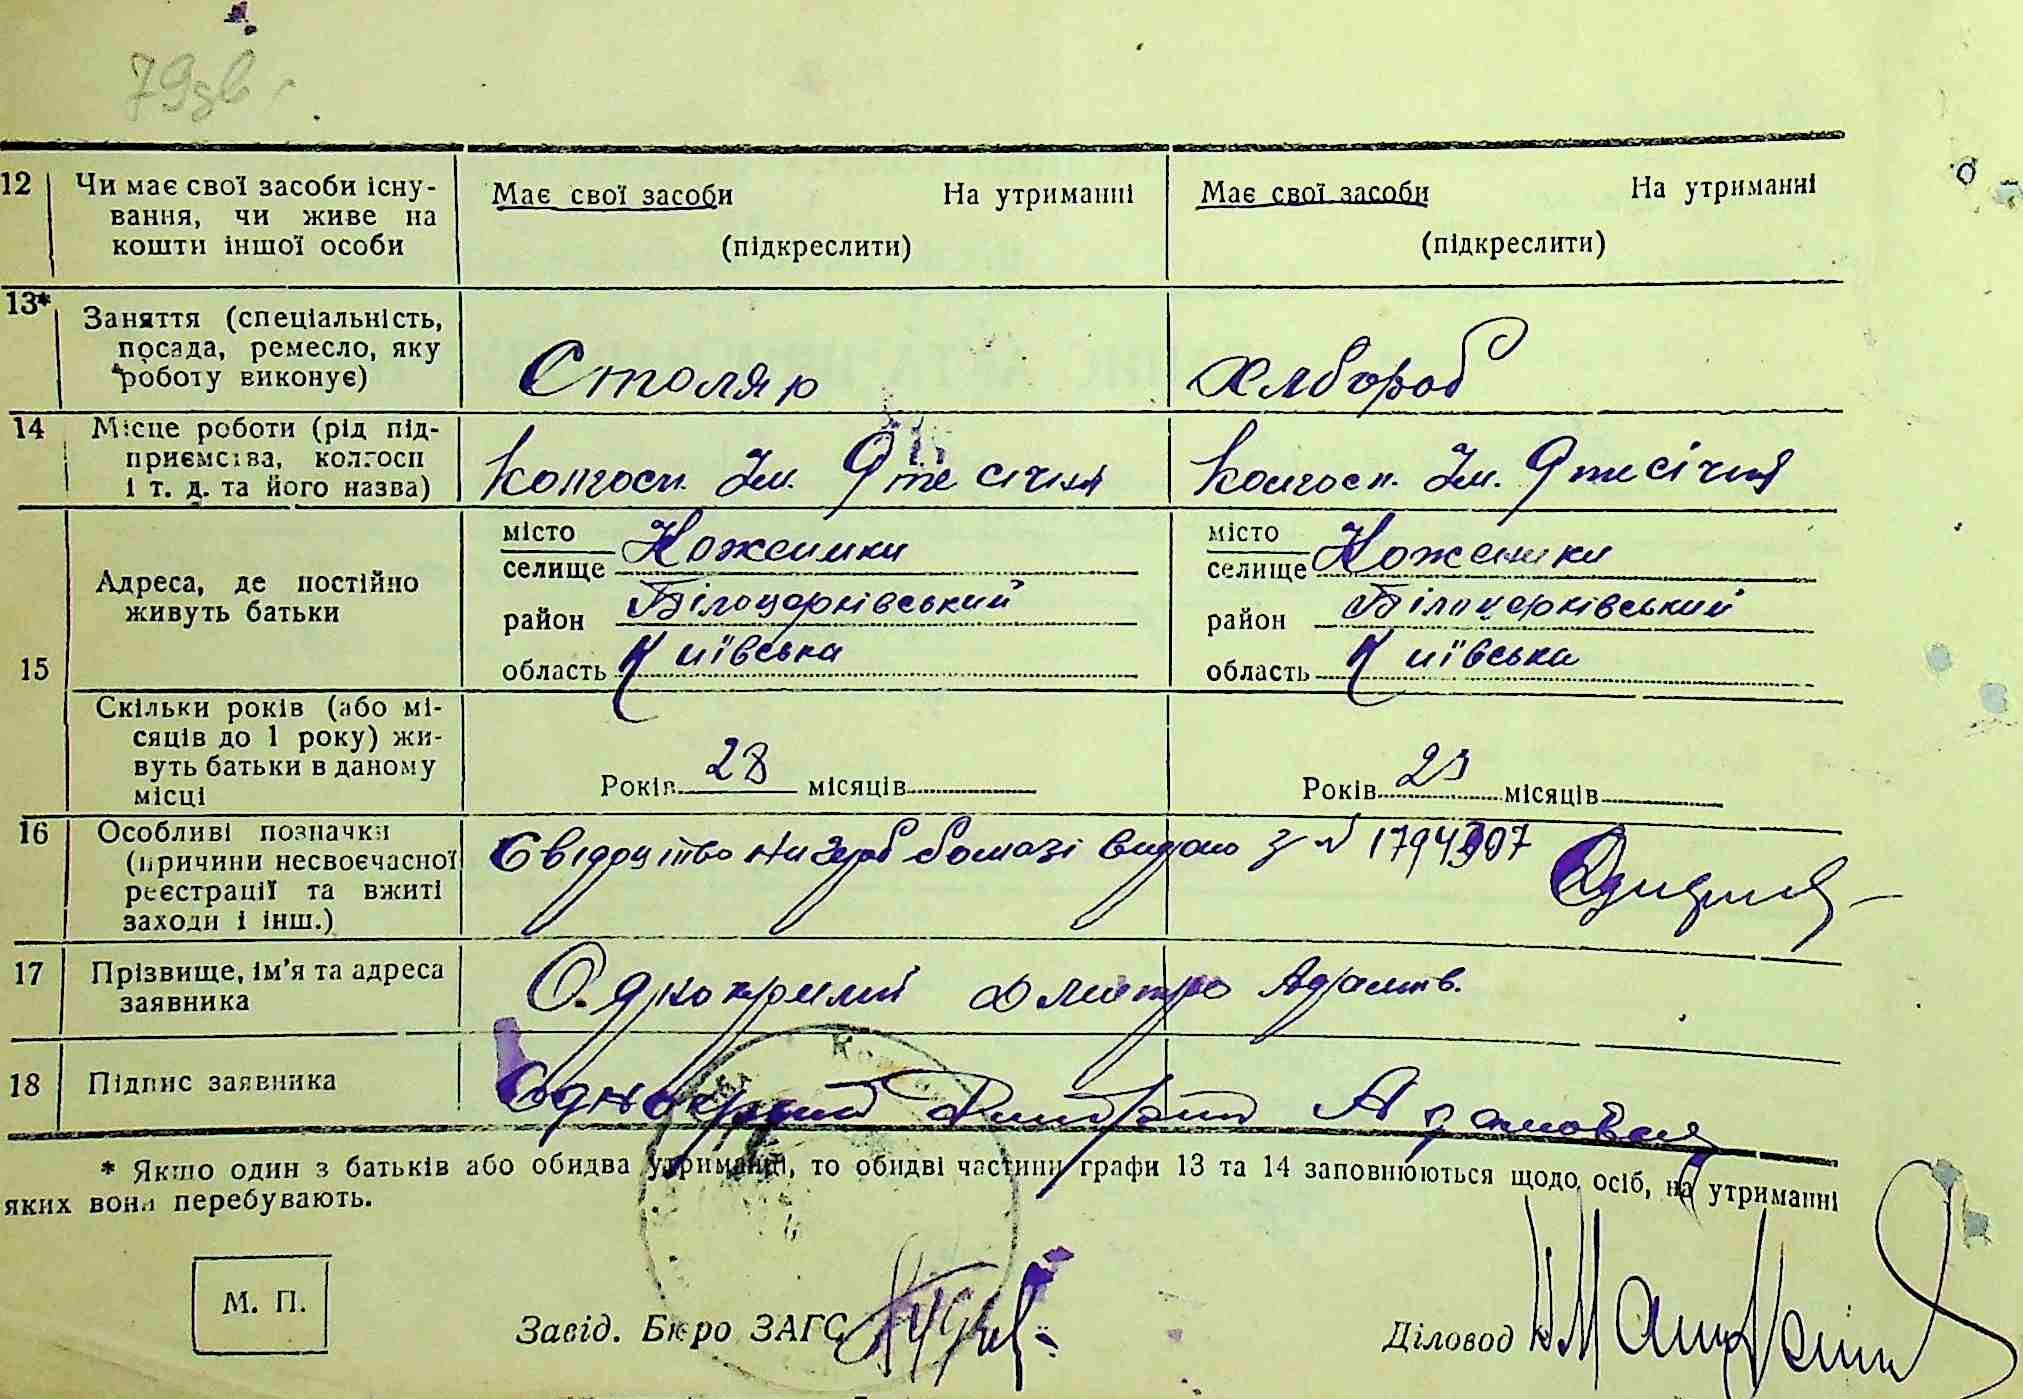 12 Чи має свої засоби існу-
вання, чи живе на
кошти іншої особи
Має свої засоби На утриманні
(підкреслити)
Має свої засоби На утриманні
(підкреслити)
13* Заняття (спеціальність,
посада, ремесло, яку
роботу виконує)
Столяр
Хлібороб
14 Місце роботи (рід під-
приємства, колгосп
і т. д. та його назва)
Колгосп. Ім. 9 те січня
Колгосп. Ім. 9 те січня
15 Адреса, де постійно
живуть батьки
місто
селище Коженики
район Білоцерківський
область Київська
місто
селище Коженики
район Білоцерківський
область Київська
Скільки років (або мі-
сяців до 1 року) жи-
вуть батьки в даному
місці
Років 28 місяців
Років 25 місяців
16 Особливі позначки
(причини несвоєчасної
реєстрації та вжиті
заходи і інш.)
Свідоцтво на герб бомазі видано з N 1794307
17 Прізвище, ім'я та адреса
заявника
Однокрилий Дмитро Адамов.
18 Підпис заявника
Однокрилий Дмитрий Адамовая
* Якщо один з батьків або обидва утриманці, то обидві частини графи 13 та 14 заповнюються щодо осіб, на утриманні
яких вони перебувають.
М. П.
Завід. Бюро ЗАГС
Діловод